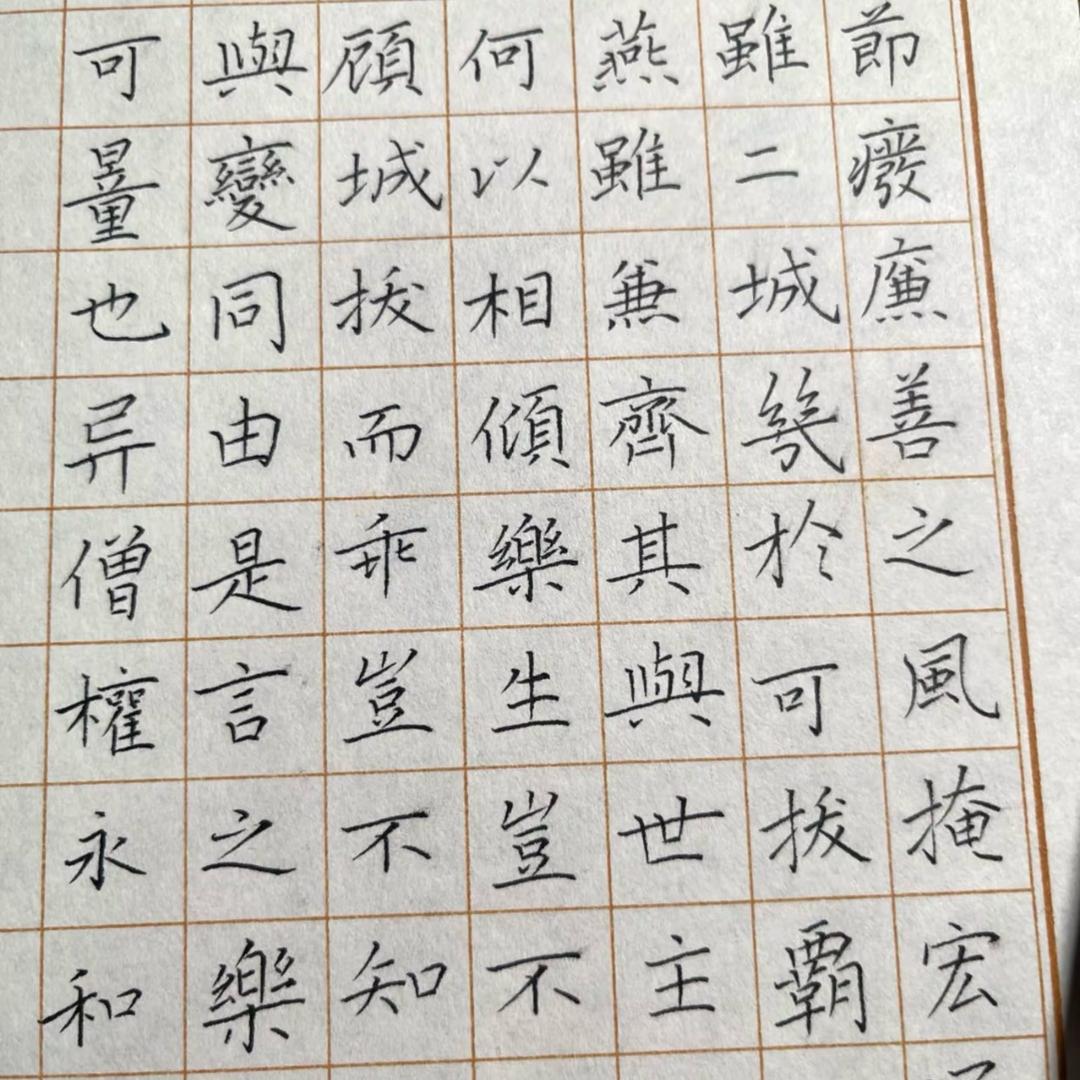 節廢廉善之風掩宏
雖二城幾於可拔霸
燕雖兼齊其與世主
何以相傾樂生豈不
顧城拔而乖豈不知
與變同由是言之樂
可量也异僧權永和